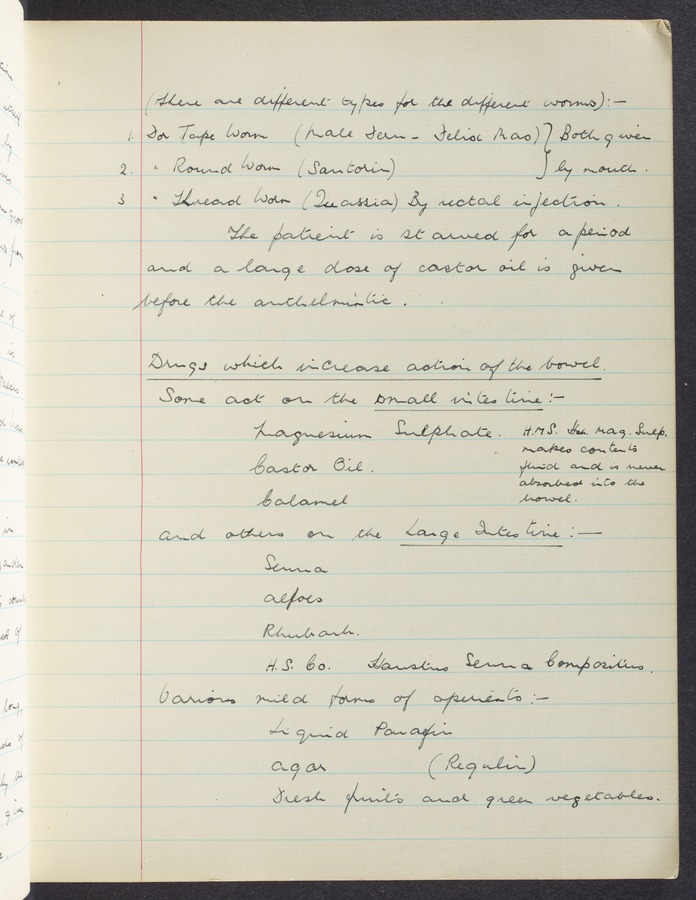 (there are different types for the different worms):—
1. For Tape Worm (Male Fern - Felix Mas) } Both given
2. " Round Worm (Santonin) } by mouth.
3 " Thread Worm (Quassia) By rectal injection.
The patient is starved for a period
and a large dose of castor oil is given
before the anthelmintic.
Drugs which increase action of the bowel.
Some act on the small intestine:—
Magnesium Sulphate. H.M.S. Hst. Mag. Sulp.
makes contents
Castor Oil. fluid and is never
absorbed into the
Calamel bowel.
and others on the Large Intestine:—
Senna
Rhubarb.
H.S. Co. Haustus Senna Compositus.
Various mild forms of aperients:—
Liquid Parafin
agar (Regulin)
Fresh fruits and green vegetables.